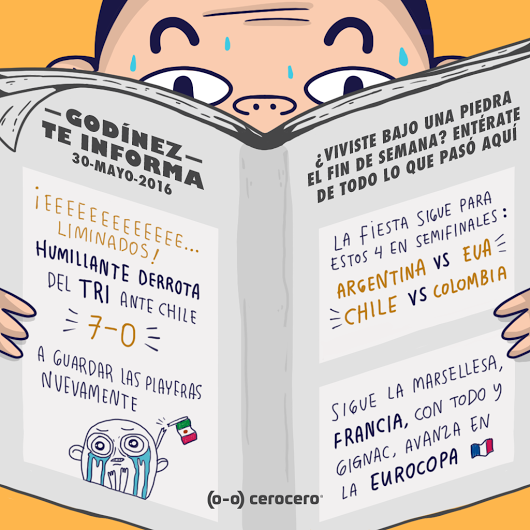 —GODÍNEZ—
TE INFORMA
30-MAYO-2016
¡EEEEEEEEEEEEE...
LIMINADOS!
HUMILLANTE DERROTA
DEL TRI ANTE CHILE
7-0
A GUARDAR LAS PLAYERAS
NUEVAMENTE
¿VIVISTE BAJO UNA PIEDRA
EL FIN DE SEMANA? ENTÉRATE
DE TODO LO QUE PASÓ AQUÍ
LA FIESTA SIGUE PARA
ESTOS 4 EN SEMIFINALES:
ARGENTINA VS EUA
CHILE VS COLOMBIA
SIGUE LA MARSELLESA,
FRANCIA, CON TODO Y
GIGNAC, AVANZA EN
LA EUROCOPA
(o-o) cerocero®